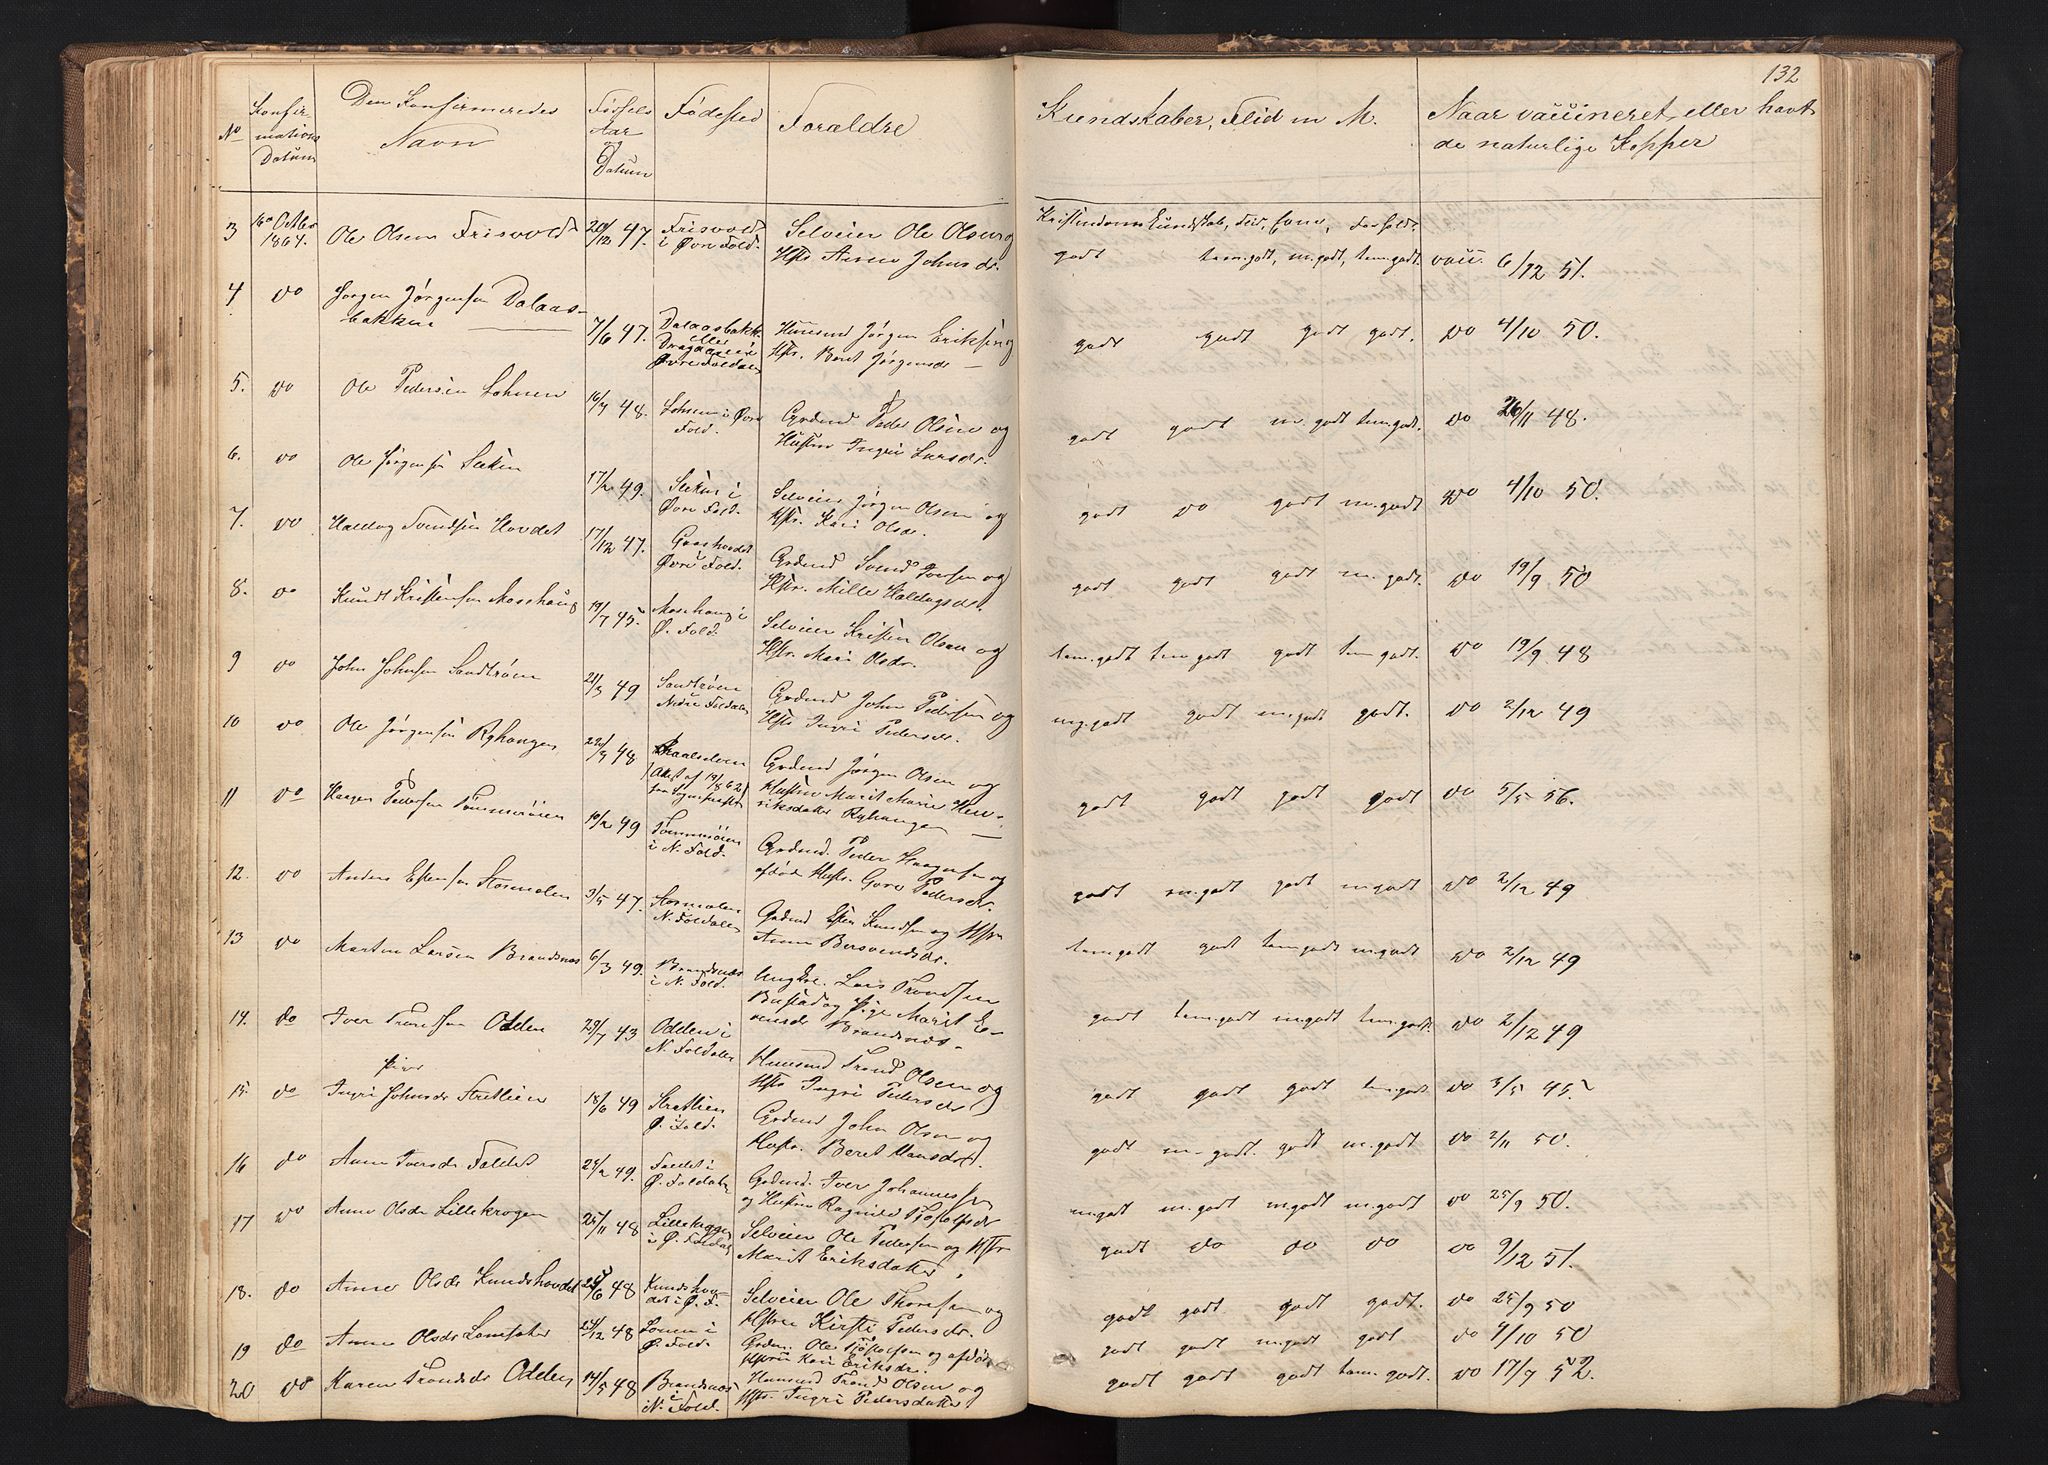 132
No
Konfir-
mations
Datum
Den Konfirmeredes
Navn
Fødsels
Aar
og
Datum
Fødested
Forældre
Kundskaber, Flid m M.
Naar vaccineret, eller havt
de naturlige Kopper
3 16 Octbr 1864. Ole Olsen Frisvold 20/12 47. Frisvold
i Øvre Fold. Selveier Ole Olsen og
Hstr Anne Johnsdr.
Kristendomskundskab, Flid, Evne, Forhold.
godt tem.godt, m.godt, tem.godt. vacc. 6/12 51.
4 do Jørgen Jørgensen Dalaas-
bakken 7/6 47. Dalaasbakk.
eller
Øvre Foldalen Huusmd Jørgen Eriksen og
Hstr. Beret Jørgensdr
godt godt godt godt. do 4/10 50.
5. do Ole Pedersen Lohnen 16/7 48. Lohnen i Øvre
Fold. Grdmd Peder Olsen og
Hustru Ingri Larsdr.
godt godt m. godt tem.godt. do 26/11 48.
6. do Ole Jørgensen 17/2 49. i
Øvre Fold. Selveier Jørgen Olsen og
Hstr. Kari Olsdr.
godt do godt m.godt do 4/10 50.
7. do Haldog Svendsen Hovdet 17/12 47. Grashovdet
i Øvre Fold. Grdmd Svend Iversen og
Hstr. Mille Haldogsdr.
godt godt godt m. godt. do 19/9 50
8. do Knudt Kristensen Moshaug 19/7 45. Moshaug i
Ø. Fold. Selveier Kristen Olsen og
Hstr. Mari Olsdr.
tem.godt tem godt godt tem godt. do 19/9 48
9 do John Johnsen Sandtrøen 21/3 49 Sandtrøen
Nedre Foldalen Grdmd John Pedersen og
Hstr Ingri Pedersdr.
mg.godt godt m.godt godt. do 2/12 49
10 do Ole Jørgensen Ryhaugen 22/3 48
(Attest af 19/8 62
fra Sognepræsten) Grdmd Jørgen Olsen og
Hustru Marit Marie Hen-
riksdatter Ryhaugen
godt godt godt godt do 5/5 56.
11 do Haagen Pedersen Tømmerøien 10/2 49 Tømmerøien
i N. Fold. Grdmd. Peder Haagensen og
afdøde Hustr. Goro Pedersdr.
godt m.godt godt m.godt do 2/12 49
12. do Anders Estensen Stormolen 3/5 47. Stormolen
N. Foldalen Grdmd Esten Knudsen og Hstr
Anne Bersvendsdr.
tem.godt godt tem.godt m.godt do 2/12 49
13 do Morten Larsen Brandsnæs 6/3 49. Brandsnæs
i N. Fold. Ungkrl. Lars Trondsen
Bustad og Pige Marit E-
vensdr Brandsnæs.
godt tem.godt m.godt tem.godt. do 2/12 49
14. do Iver Trondsen Odden 29/7 43 Odden i
N. Foldalen Huusmd Trond Olsen og
Hstr Ingri Pedersdr
godt godt godt tem.godt do 3/5 45.
Piger
15. do Ingri Johnsdr Stretlien 18/6 49 Stretlien
Ø. Fold. Grdmd John Olsen og
Hustr. Beret Hansdtr.
godt m. godt. godt m.godt do 2/11 50.
16 do Anne Iversdr Foldet 24/2 49. Foldet i
Ø. Foldalen Grdmd. Iver Johannessen
og Hustru Ragnild
m.godt m.godt m.godt m.godt do 25/9 50.
17 do Anne Olsdr Lillekrogen 25/11 48 Lillekrogen
i Ø. Foldal Selveier Ole Pedersen og Hstr
Marit Eriksdatter
godt do do do do 9/12 51.
18. do Anne Olsdr Knudshovdet 25/6 48 Knudshov-
det i Ø. F. Selveier Ole Thoresen og
Hstru Kirsti Pedersdr.
godt godt. godt godt. do 25/9 50
19 do Anne Olsdr 24/12 48 i
Ø. Fold. Grdm. Ole og afdøde
Hstru Kari Eriksdr.
godt godt m.godt godt do 4/10 50
20 do Karen Trondsdr Odden 14/5 48 Brandsnæs
i
N. Fold. Huusmd Trond Olsen og
Hstr. Ingri Pedersdatter
godt godt godt tem. godt. do 17/7 52.